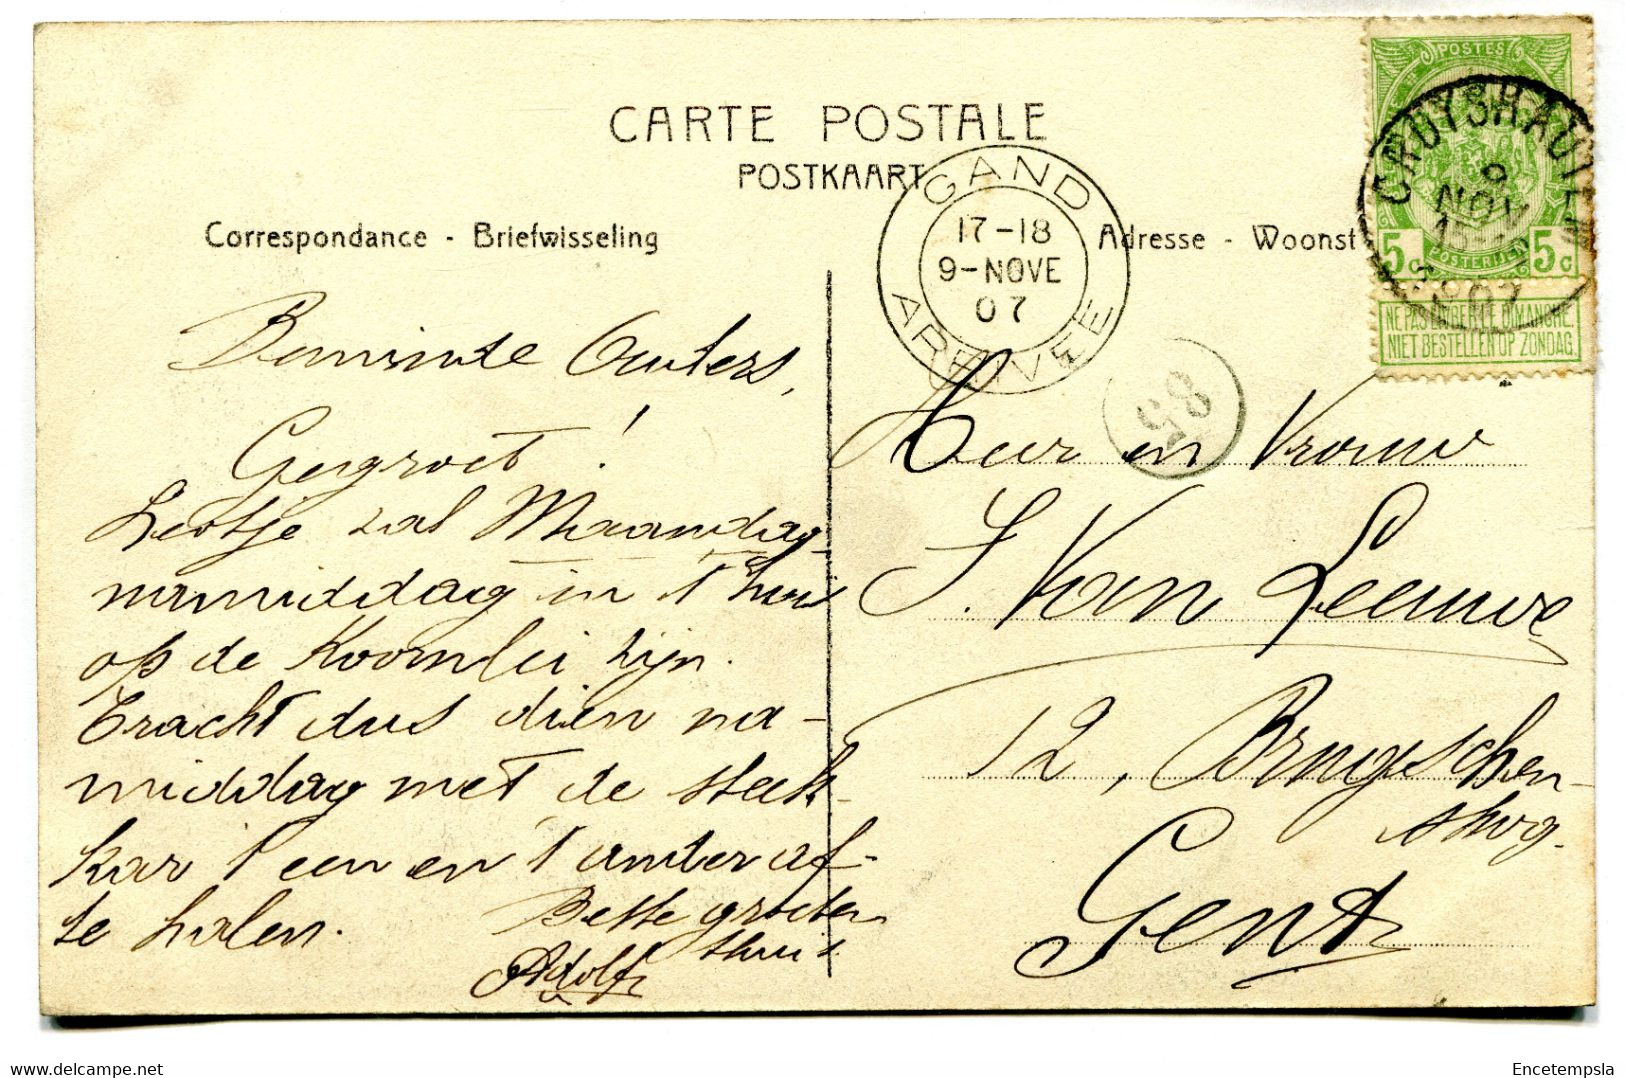 CARTE POSTALE
POSTKAART
Correspondance - Briefwisseling
Adresse - Woonst
GAND
17-18
9-NOVE
07
ARRIVÉE
POSTES
5c POSTERIJEN 5c
NE PAS LIVRER LE DIMANCHE.
NIET BESTELLEN OP ZONDAG
CRUYSHAUTEM
9
NOV
15-
1907
85
Beminde Ouders,
Gegroet!
Leotje zal Maandag
namiddag in 't huis
op de Koornlei zijn.
Tracht dus dien na-
middag met de steek-
kar 't een en 't ander af-
te halen.
Beste groeten
thuis
Adolf
Heer en Vrouw
S. Van Leeuwe
12, Brugschen-
stwg.
Gent
www.delcampe.net
Encetempsla